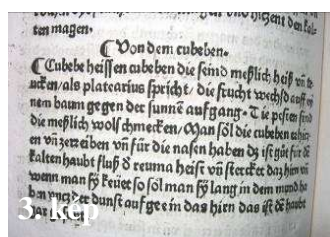 ten magen.
¶ Von dem cubeben.
¶ Cubebe heissen cubeben die seind meßlich heiß vñ
ucken/als platearius spricht/ die frucht wechsd auff
nem baum gegen der sunnē aufgang. Die besten sind
die meßlich wolschmecken/Man sol die cubeben
en vñ zerreiben vñ für die nasen haben dz ist gůt für dē
kalten haubt fluß ð reuma heist vñ stercket daz hirn vñ
wenn man sy keüet so sol man sy lang in dem mund
ben wan der dunst auf gee in das hirn das ist dē haubt
3. kép